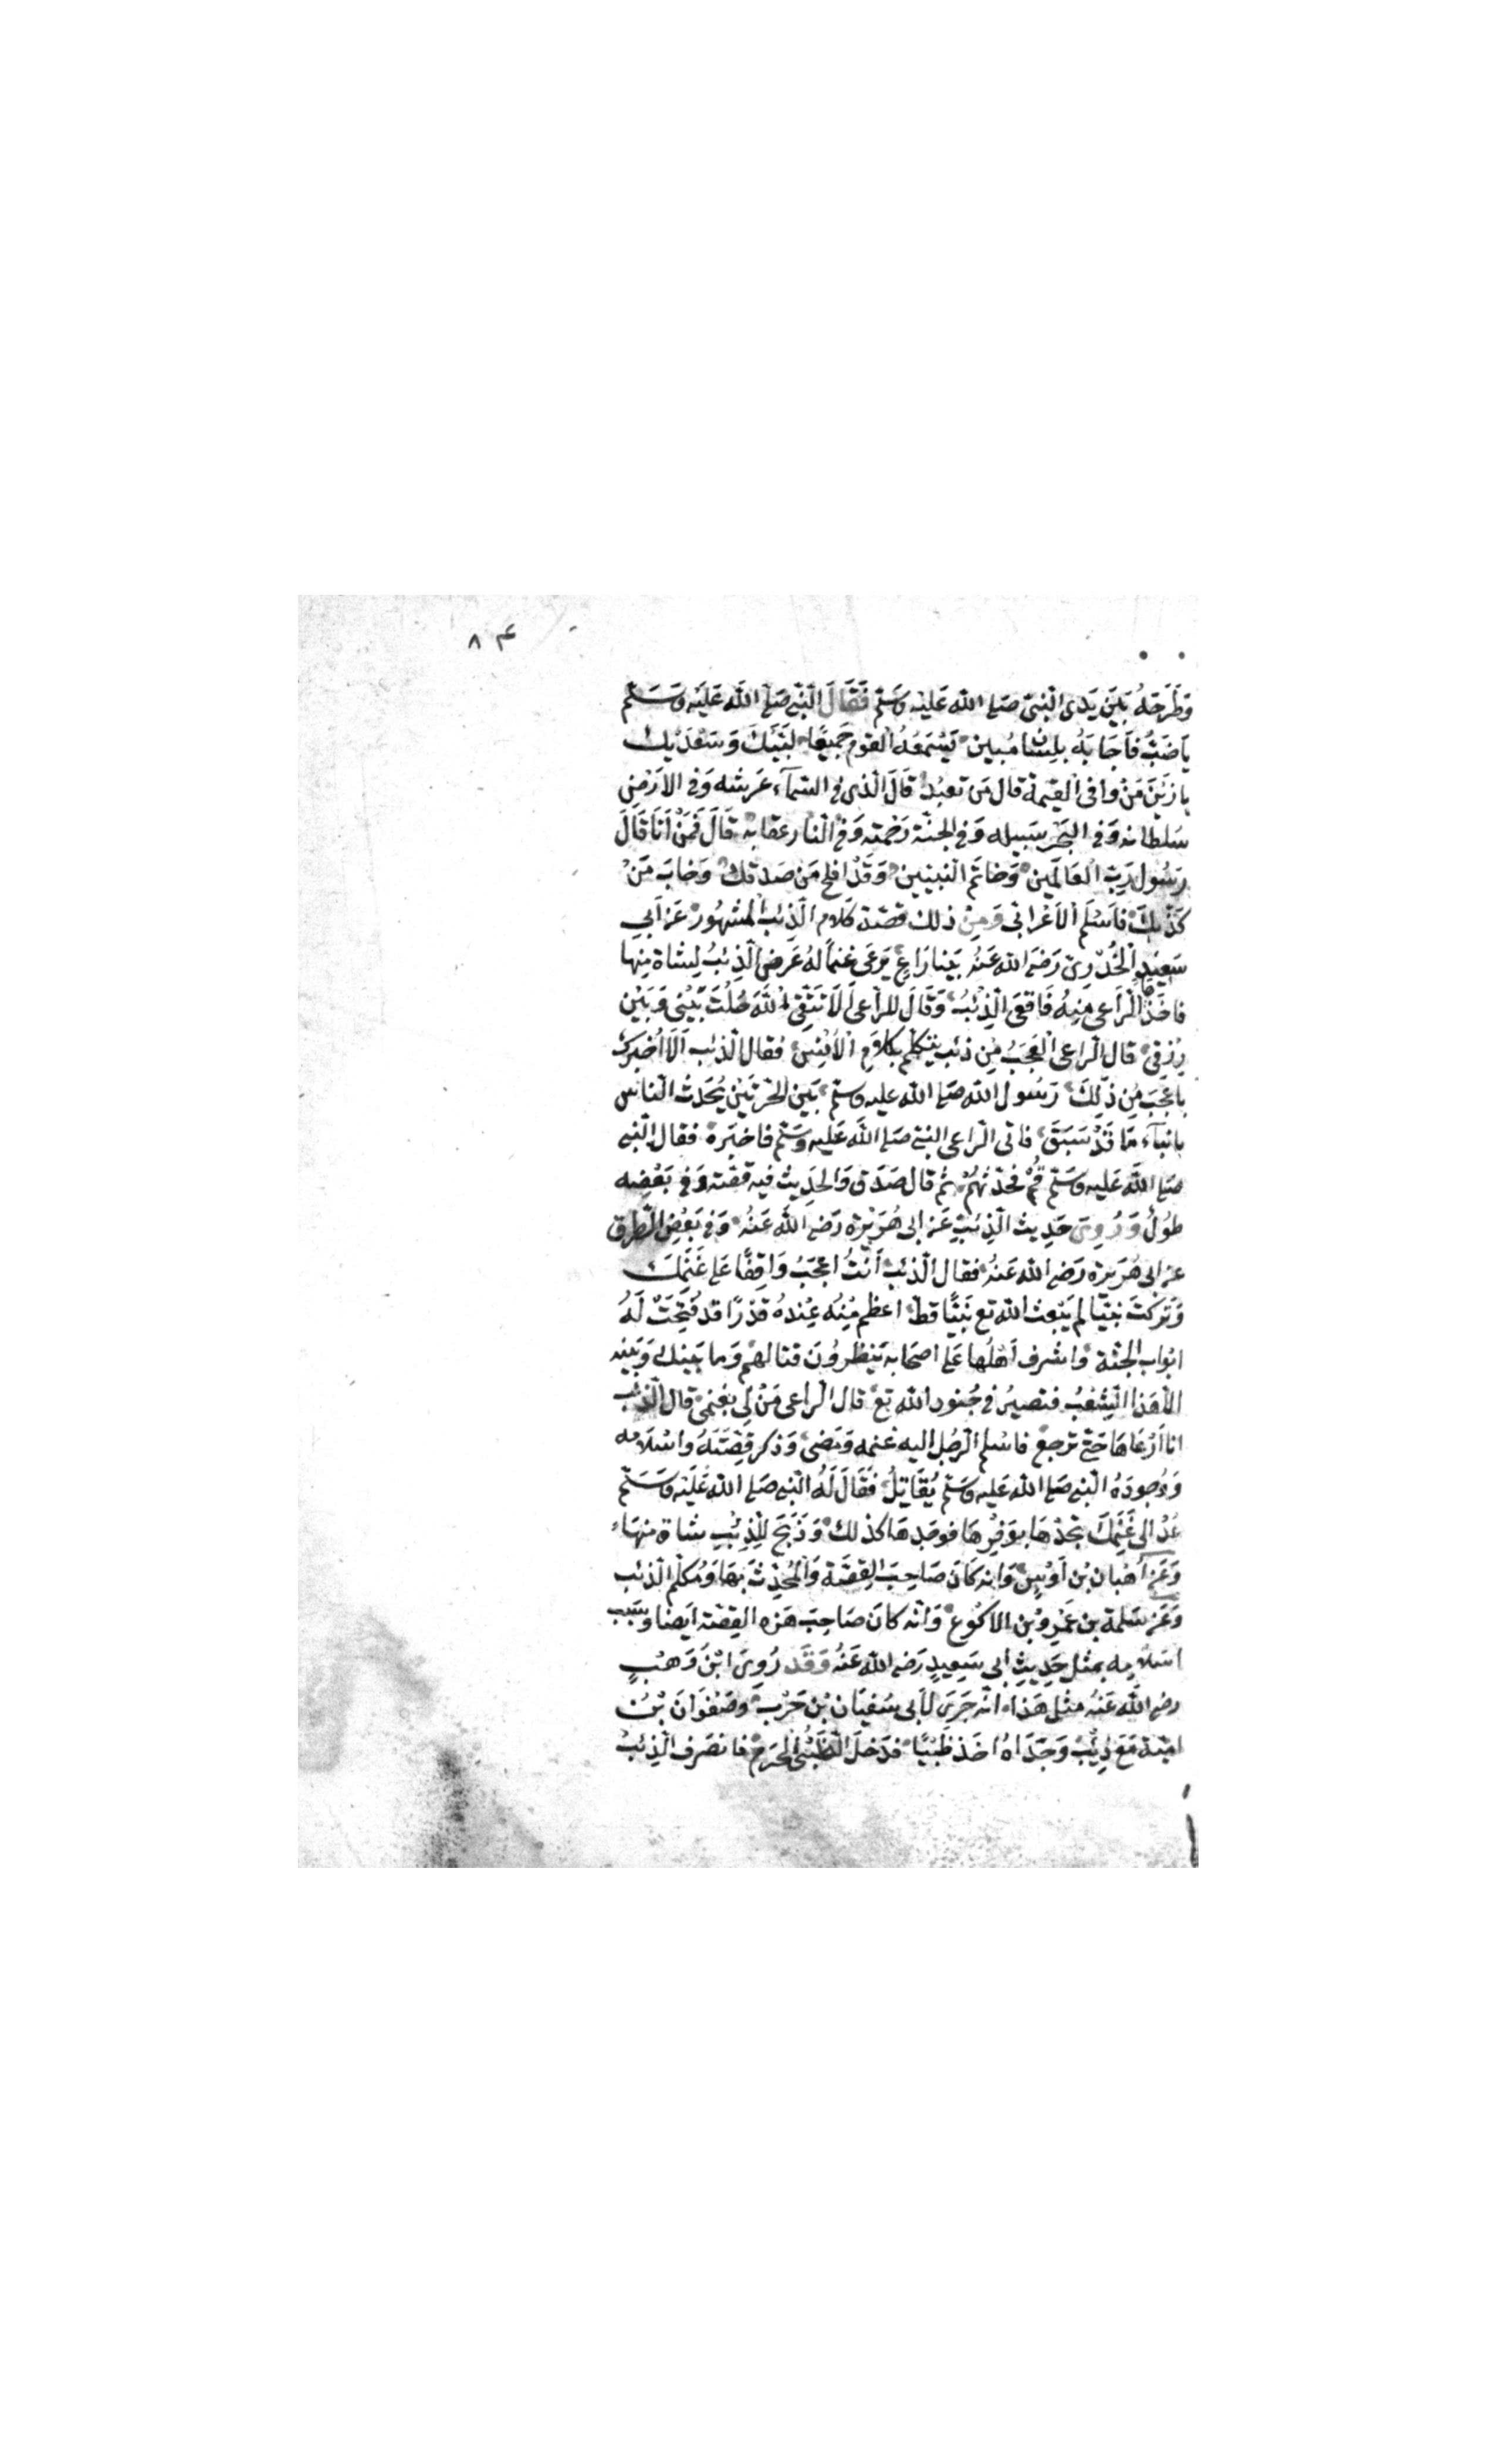 ٨٤
وَطَرَحَهُ بَيْنَ يَدَىِ النَّبِىِّ صَلَى الله عَلَيْه وَسَلَّم فَقَالَ النَّبِى صَلَى اللَّه عَلَيْه وَسَلَّم
يَاضَبُّ فَاَجَابَهُ بِلِسَانٍ مُبِينٍ يَسْمَعُهُ القوم جَمِيعًا لَبَّيْكَ وَسَعْدَيْكَ
يا زَيْنَ مَنْ وافى القيمة قال مَن تعبُد قَالَ الّذى فى السّمآء عَرشه وَفى الاَرْضِ
سَلطانه وَفى البَحْرِ سَبيله وَفى الجنّة رَحْمته وَفى النّار عقابه قَالَ فَمَنْ اَنَا قَالَ
رَسُول رَبّ العَالَمين وَخاتَم النّبيّين وَقَدْ افلح مَن صدقك وَخابَ مَنْ
كَذَّبَكَ فاَسْلَم الاَعْرابى وَمِنْ ذلك قصّة كَلام الذِّئب المشهُور عَن اَبى
سَعِيدٍ الخُدْرىّ رَضىَ الله عَنهُ بَيْنا رَاعٍ يَرعَى غنماً لهُ عَرَض الذِئبُ لِشاة مِنها
فاخذَها الرَّاعى مِنهُ فَاقعَى الذِئبُ وَقَالَ للرّاعى اَلَا تَتَّقى الله حُلْتَ بَيْنى وَبَيْن
رِزْقى قال الرّاعى العَجَبُ مِن ذئب يتكلّم بكلام الاُنْسِ فقال الذئب اَلَا اُخبرك
باعْجَبَ مِن ذٰلِكَ رَسُول الله صَلى الله عليه وسلم بَيْن الحَرّتَيْن يُحَدِّث النّاس
بانبآء مَا قَدْ سَبَقَ فاتى الرّاعى النبىّ صَلى اللَّه عَليه وَسَلّم فاخبَرهُ فقال النّبى
صَلى اللَّه عَليه وَسَلّم قُمْ فحَدِّثهُمْ ثم قال صَدَق وَالحَدِيث فيه قصّته وَفى بَعْضِه
طُولٌ وَرُوِىَ حَدِيث الذِئبِ عَن ابى هُرَيْرَة رَضى الله عَنهُ وَفى بَعْضِ الطّرق
عن ابى هُرَيرة رَضى الله عَنهُ فقال الذئب اَنْتَ اعْجَبُ وَاقِفًا عَلى غَنَمِكَ
وَتَرَكْتَ نَبيّا لم يَبْعث الله تع نَبيًّا قطّ اعظم مِنه عِنْدهُ قَدْرًا قد فُتِحَتْ لَهُ
ابواب الجنّة وَاشرف اَهْلُها عَلى اصحابه يَنظرُونَ قتالهُم وَما بَينك وَبَينه
الاّ هذا الشّعْبُ فتصيرُ فى جُنود الله تع قال الرّاعى مَنْ لى بغنمى قال الذئب
انا اَرْعَاهَا حَتّى ترجعَ فاسلم الرّجُل اليه غنمه وَمَضى وَذكر قصّتَهُ وَاسْلَامه
وَوُجودَهُ النّبى صَلى الله عَليه وسَلّم يُقَاتِلُ فَقَالَ لَهُ النّبى صَلى الله عَلَيْه وَسَلَّم
عُدْ الى غَنَمِكَ تجدْهَا بوَفِرِهَا فوجدهَا كذلك وَذَبَحَ لِلذِئْبِ شاة منهَا
وَعَن اُهْبان بْن اَوْسٍ وَانه كَانَ صَاحِبَ القِصَّة وَالمُحَدِّثَ بهَا وَمُكلّم الذئب
وَعَن سَلمة بن عَمْرو بْن الاكوَع وَانّه كانَ صَاحِبَ هَذِه القِصّة ايضا وَسَبَبَ
اسَلَامِه بمثل حَدِيثِ ابى سَعِيدٍ رَضى الله عَنهُ وَقَد رَوىَ ابْن وَهْبٍ
رضى الله عَنهُ مثل هَذا انّه جَرَى لاَبى سُفيَان بْن حَرْب وَصَفْوَانَ بْن
اميّة مَعَ ذِئب وَجَدَاهُ اخَذ ظَبْيًا فدَخلَ الظَّبْىُ الحَرَم فانصَرف الذِئبُ